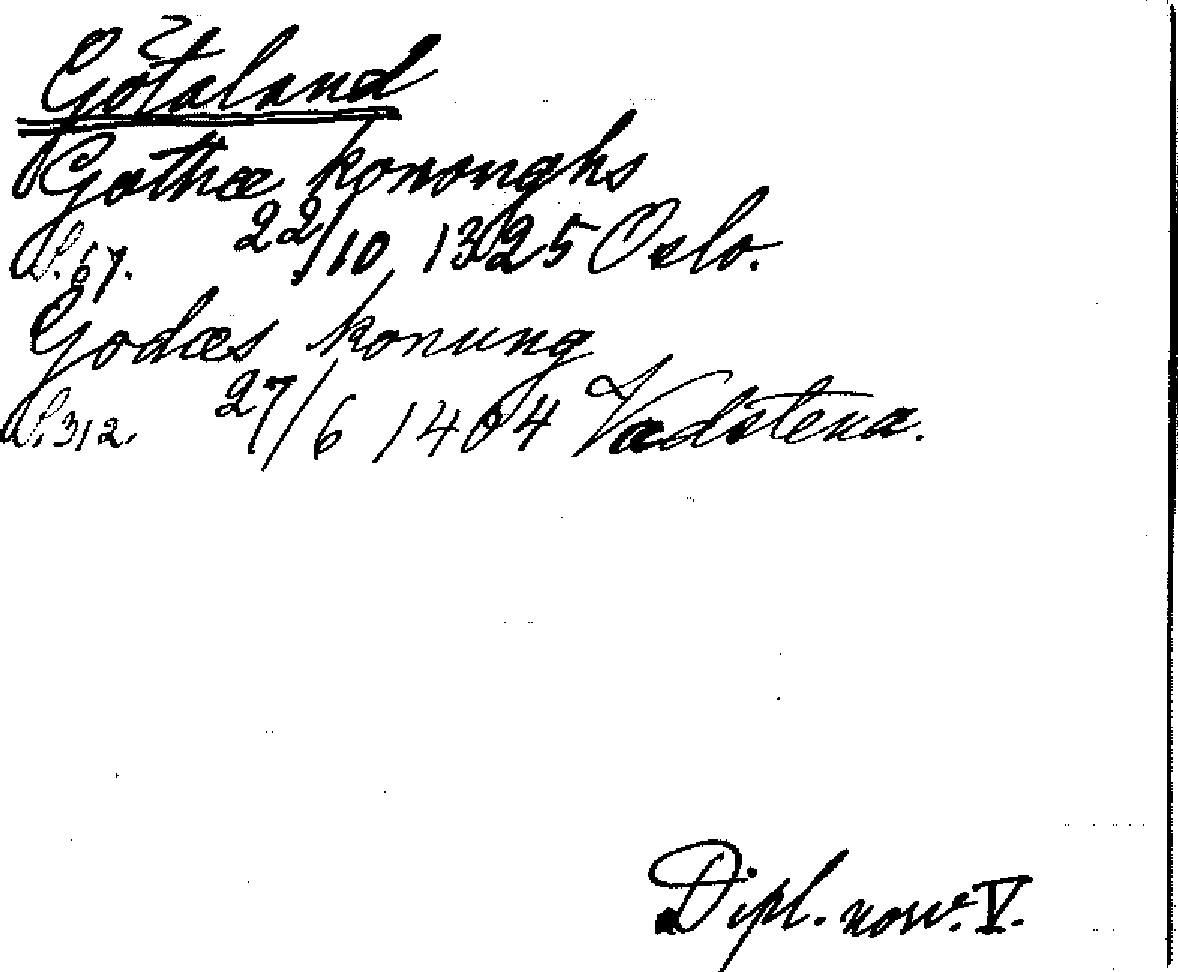 Götaland
Gothæ kononghs
S. 67. 22/10 1325 Oslo.
Godæs konung
S. 312. 27/6 1404 Vadstena.
Dipl. norv. V.